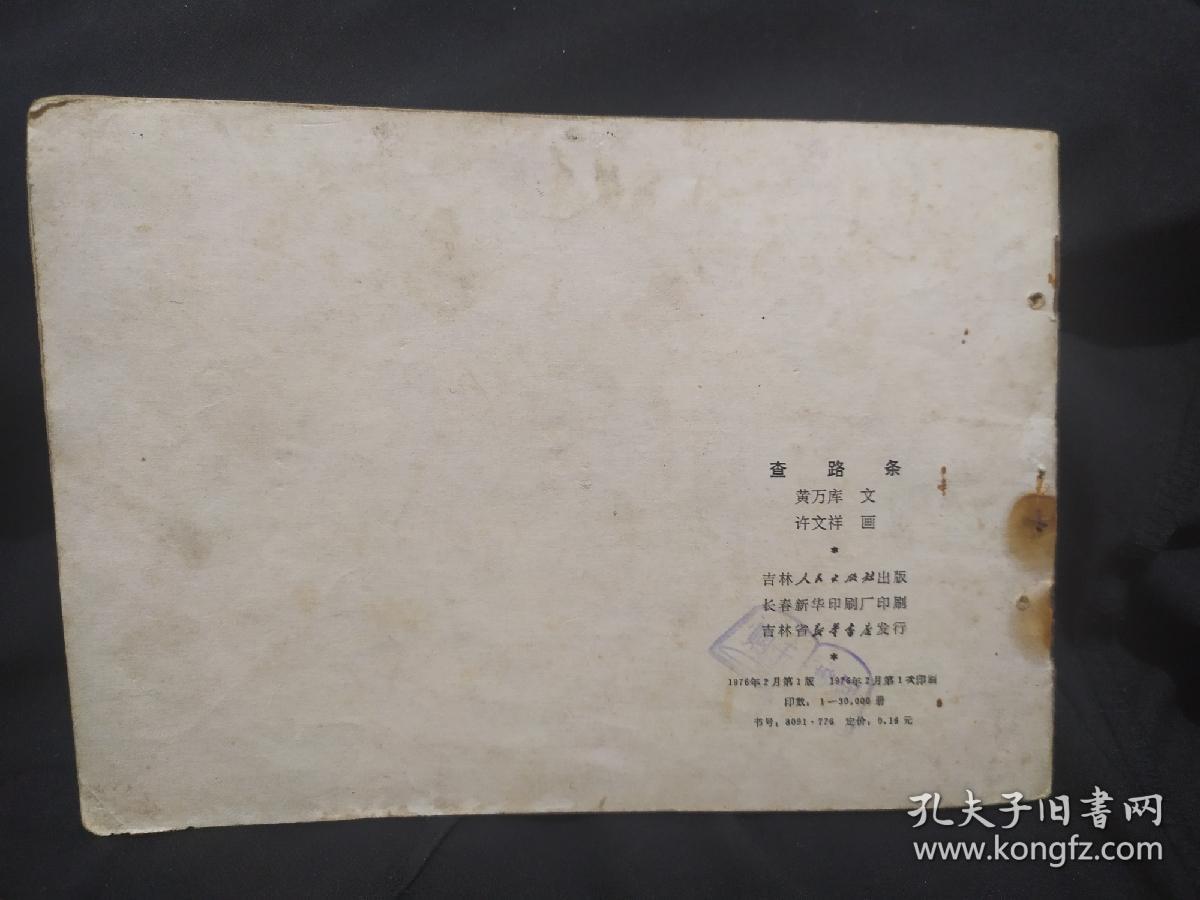 查路条
黄万库 文
许文祥 画
*
吉林人民出版社出版
长春新华印刷厂印刷
吉林省新华书店发行
*
1976年2月第1版 1976年2月第1次印刷
印数：1—30,000册
书号：8091·776 定价：0.16元
孔夫子旧书网
www.kongfz.com